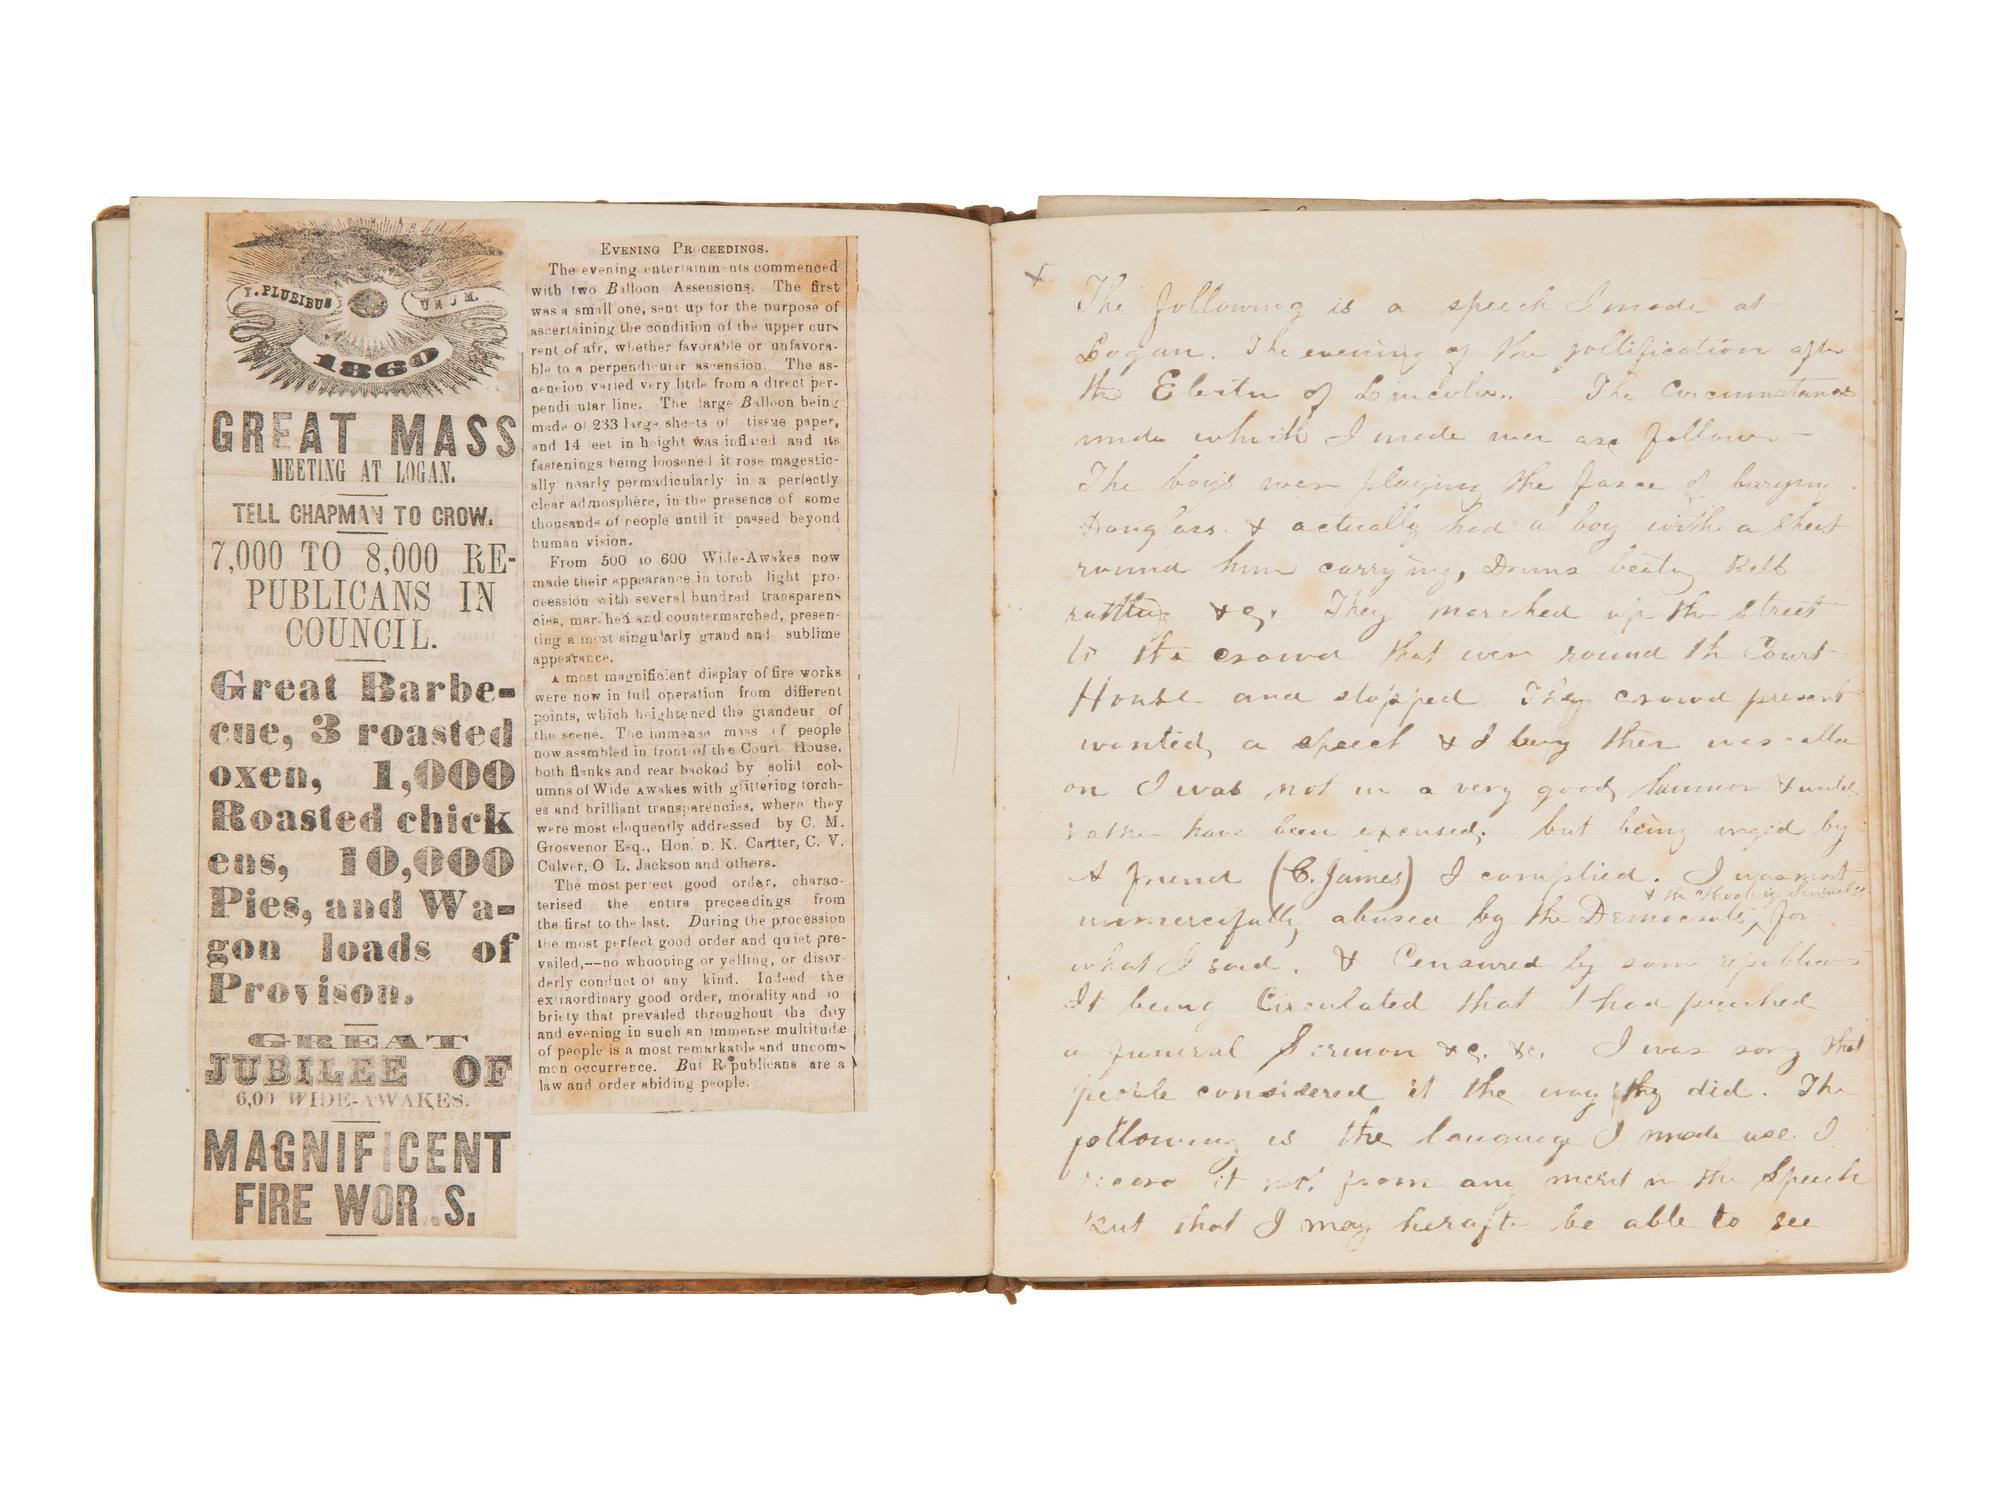 E PLURIBUS UNUM.
1860
GREAT MASS
MEETING AT LOGAN.
TELL CHAPMAN TO CROW.
7,000 TO 8,000 RE-
PUBLICANS IN
COUNCIL.
Great Barbe-
cue, 3 roasted
oxen, 1,000
Roasted chick
ens, 10,000
Pies, and Wa-
gon loads of
Provison.
GREAT
JUBILEE OF
6,00 WIDE-AWAKES.
MAGNIFICENT
FIRE WOR S.
EVENING PROCEEDINGS.
The evening entertainments commenced
with two Balloon Assensions. The first
was a small one, sent up for the purpose of
ascertaining the condition of the upper cur-
rent of air, whether favorable or unfavora-
ble to a perpendicular ascension. The as-
cension varied very little from a direct per-
pendi ular line. The large Balloon being
made of 233 large sheets of tissue paper,
and 14 eet in height was inflated and its
fastenings being loosened it rose magestic-
ally nearly permadicularly in a perfectly
clear admosphere, in the presence of some
thousands of people until it passed beyond
human vision.
From 500 to 600 Wide-Awakes now
made their appearance in torch light pro-
cession with several hundred transparen-
cies, marched and countermarched, presen-
ting a most singularly grand and sublime
appearance.
A most magnificient display of fire works
were now in full operation from different
points, which heightened the grandeur of
the scene. The immense mass of people
now assembled in front of the Court House,
both flanks and rear backed by solid col-
umns of Wide Awakes with glittering torch-
es and brilliant transparencies, where they
were most eloquently addressed by C. M.
Grosvenor Esq., Hon. D. K. Cartter, C. V.
Culver, O L. Jackson and others.
The most perfect good order, charac-
terised the entire preceedings from
the first to the last. During the procession
the most perfect good order and quiet pre-
vailed,—no whooping or yelling, or disor-
derly conduct of any kind. Indeed the
extraordinary good order, morality and so
briety that prevailed throughout the day
and evening in such an immense multitude
of people is a most remarkable and uncom-
mon occurrence. But Republicans are a
law and order abiding people.
x The following is a speech I made at
Logan. The evening of the jollification after
the Election of Lincoln.. The circumstances
unde which I made wer as follows—
The boys wer playing the farce of burying
Douglass. & actually had a boy with a sheet
round him carrying, Drums beating Bells
rattling &c. They marched up the street
to the crowd that wer round th Court
House and stopped. They crowd present
wanted a speech & I being ther was calld
on I was not in a very good humor & would
rather have been excused, but being urged by
A friend (C. James) I complied. I was most
unmercifully abused by the Democrats, for
what I said. & Censured by som republicans
It being Circulated that I had preached
a funeral Sermon &c. &c. I was sorry that
people considered it the way thy did. The
following is the language I made use. I
it not from any merit in the Speech
But that I may herafte be able to see